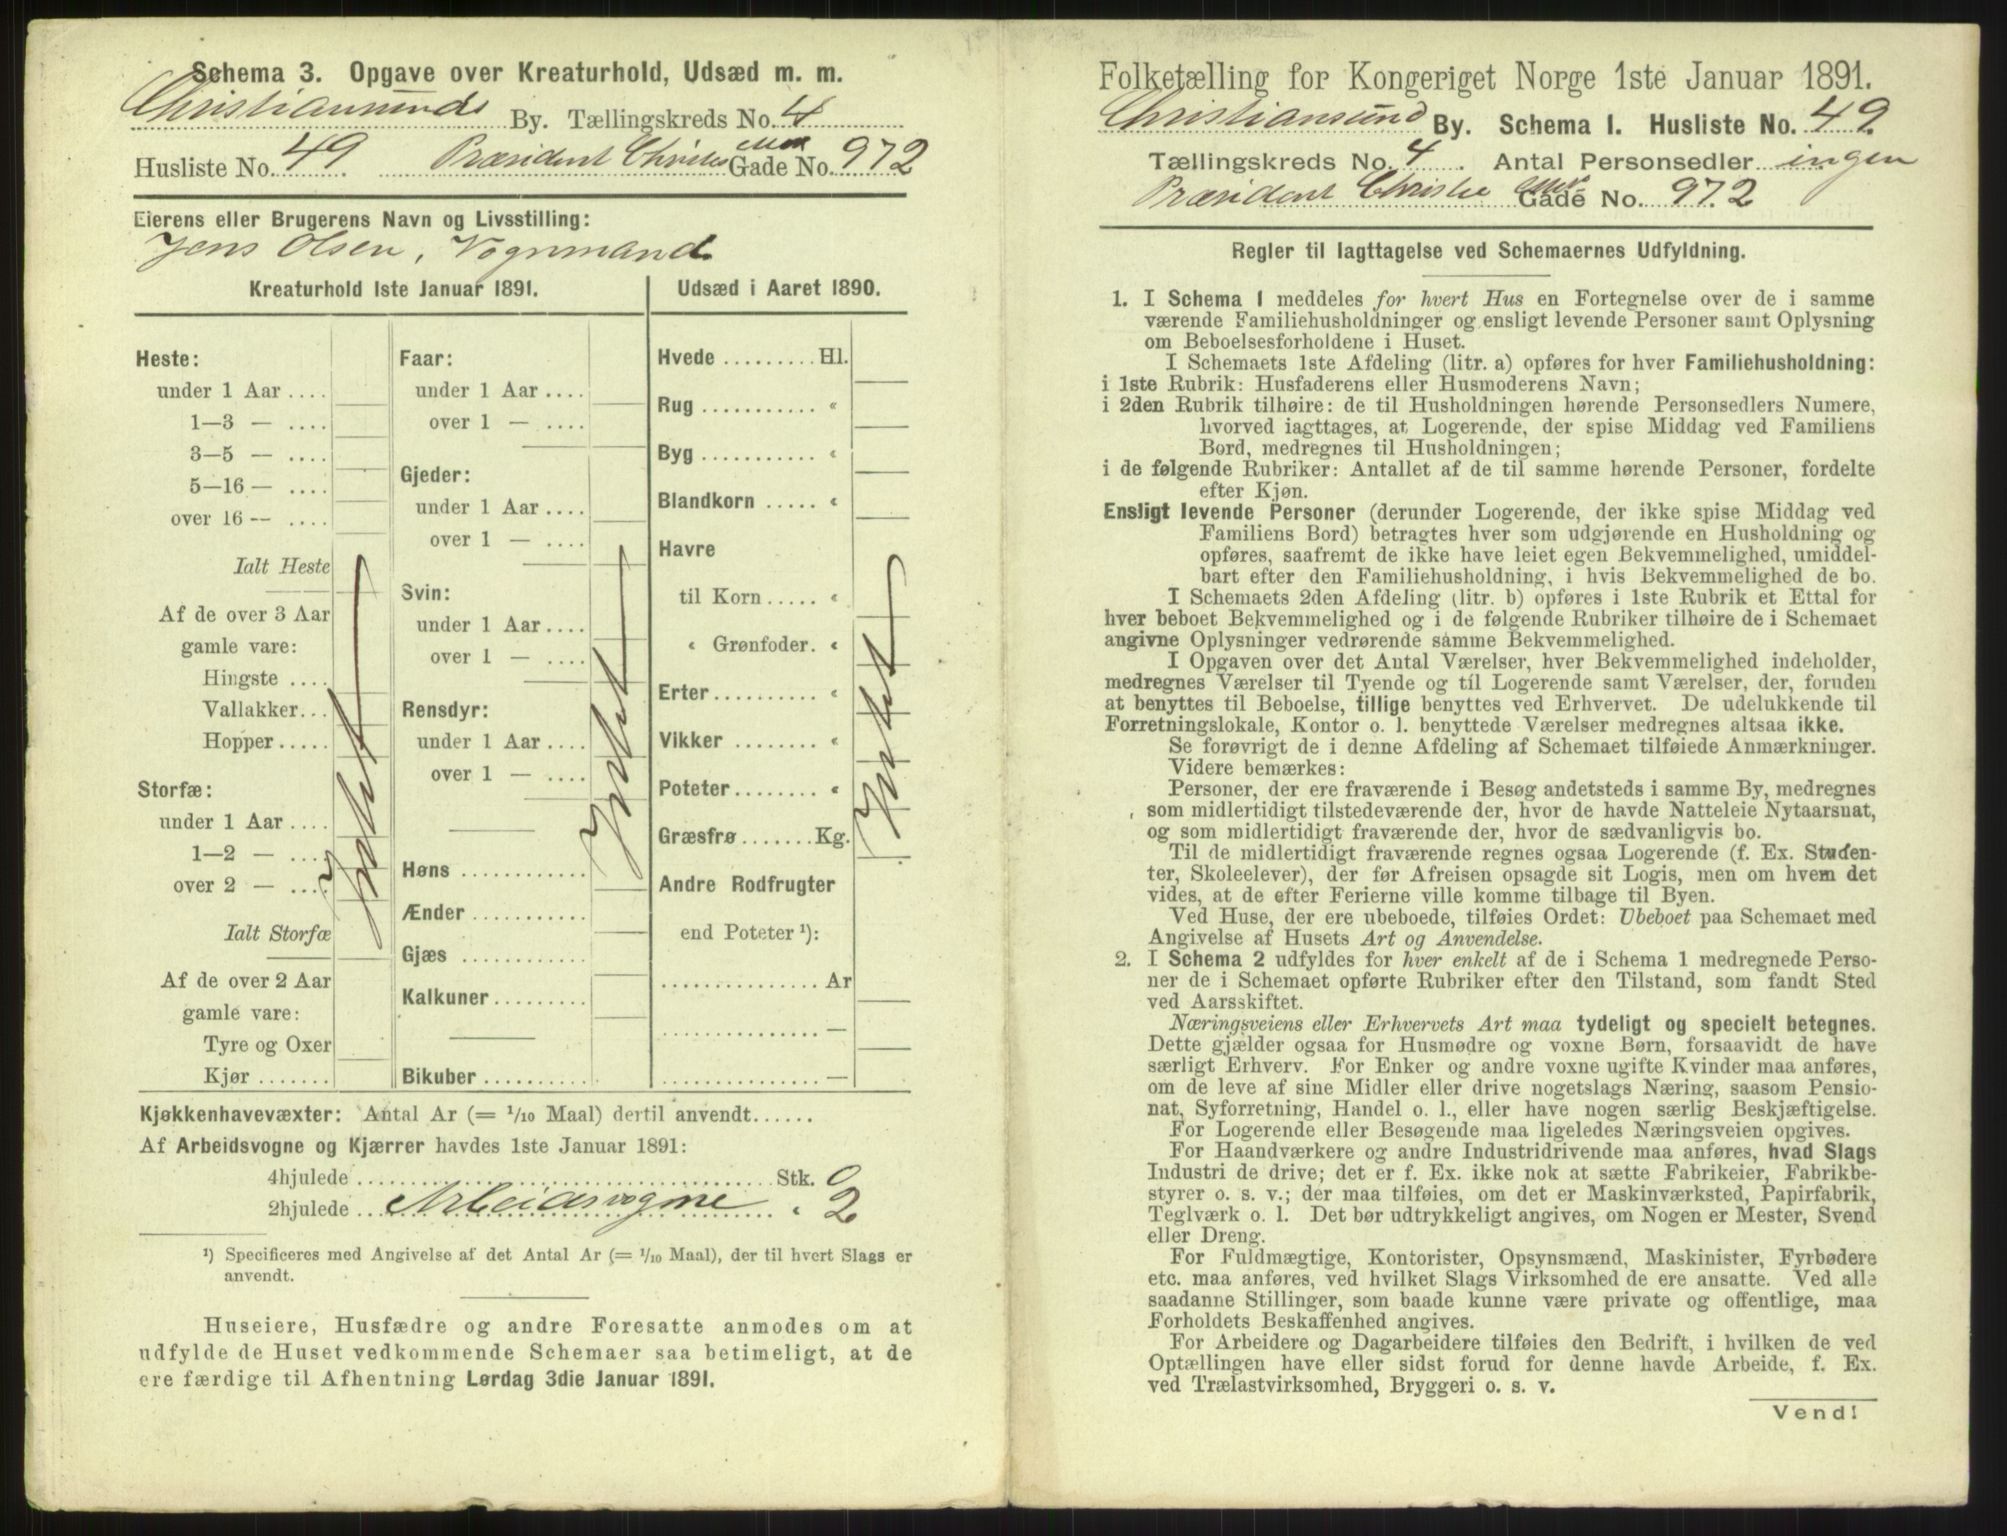 Schema 3. Opgave over Kreaturhold, Udsæd m. m.
Christiansunds By. Tællingskreds No. 4
Husliste No. 49. Præsident Christies Gade No. 972
Eierens eller Brugerens Navn og Livsstilling:
Jens Olsen, Vognmand.
Kreaturhold 1ste Januar 1891.
Heste:
under 1 Aar ....
1—3 — ....
3—5 — ....
5—16 — ....
over 16 — ....
Ialt Heste
Af de over 3 Aar
gamle vare:
Hingste ....
Vallakker...
Hopper.....
Storfæ:
under 1 Aar ....
1—2 — ....
over 2 — ....
Ialt Storfæ
Af de over 2 Aar
gamle vare:
Tyre og Oxer
Kjør.......
Intet
Faar:
under 1 Aar ....
over 1 — ....
Gjeder:
under 1 Aar ....
over 1 — ....
Svin:
under 1 Aar ....
over 1 — ....
Rensdyr:
under 1 Aar ....
over 1 — ....
Høns ............
Ænder ...........
Gjæs ............
Kalkuner.........
Bikuber ..........
Intet
Udsæd i Aaret 1890.
Hvede ......... Hl.
Rug ........... "
Byg ........... "
Blandkorn ..... "
Havre
til Korn..... "
" Grønfoder. "
Erter ......... "
Vikker ........ "
Poteter........ "
Græsfrø ....... Kg.
Andre Rodfrugter
end Poteter ¹):
............... Ar
............... —
............... —
Intet
Kjøkkenhavevæxter: Antal Ar (= 1/10 Maal) dertil anvendt......
Af Arbeidsvogne og Kjærrer havdes 1ste Januar 1891:
4hjulede ........................ Stk. 0
2hjulede ... Arbeidsvogne ... " 2
¹) Specificeres med Angivelse af det Antal Ar (= 1/10 Maal), der til hvert Slags er
anvendt.
Huseiere, Husfædre og andre Foresatte anmodes om at
udfylde de Huset vedkommende Schemaer saa betimeligt, at de
ere færdige til Afhentning Lørdag 3die Januar 1891.
Folketælling for Kongeriget Norge 1ste Januar 1891.
Christiansund By. Schema 1. Husliste No. 49.
Tællingskreds No. 4. Antal Personsedler ingen
Præsident Christie Gade No. 972
Regler til Iagttagelse ved Schemaernes Udfyldning.
1. I Schema 1 meddeles for hvert Hus en Fortegnelse over de i samme
værende Familiehusholdninger og ensligt levende Personer samt Oplysning
om Beboelsesforholdene i Huset.
I Schemaets 1ste Afdeling (litr. a) opføres for hver Familiehusholdning:
i 1ste Rubrik: Husfaderens eller Husmoderens Navn;
i 2den Rubrik tilhøire: de til Husholdningen hørende Personsedlers Numere,
hvorved iagttages, at Logerende, der spise Middag ved Familiens
Bord, medregnes til Husholdningen;
i de følgende Rubriker: Antallet af de til samme hørende Personer, fordelte
efter Kjøn.
Ensligt levende Personer (derunder Logerende, der ikke spise Middag ved
Familiens Bord) betragtes hver som udgjørende en Husholdning og
opføres, saafremt de ikke have leiet egen Bekvemmelighed, umiddel-
bart efter den Familiehusholdning, i hvis Bekvemmelighed de bo.
I Schemaets 2den Afdeling (litr. b) opføres i 1ste Rubrik et Ettal for
hver beboet Bekvemmelighed og i de følgende Rubriker tilhøire de i Schemaet
angivne Oplysninger vedrørende samme Bekvemmelighed.
I Opgaven over det Antal Værelser, hver Bekvemmelighed indeholder,
medregnes Værelser til Tyende og til Logerende samt Værelser, der, foruden
at benyttes til Beboelse, tillige benyttes ved Erhvervet. De udelukkende til
Forretningslokale, Kontor o. l. benyttede Værelser medregnes altsaa ikke.
Se forøvrigt de i denne Afdeling af Schemaet tilføiede Anmærkninger.
Videre bemærkes:
Personer, der ere fraværende i Besøg andetsteds i samme By, medregnes
som midlertidigt tilstedeværende der, hvor de havde Natteleie Nytaarsnat,
og som midlertidigt fraværende der, hvor de sædvanligvis bo.
Til de midlertidigt fraværende regnes ogsaa Logerende (f. Ex. Studen-
ter, Skoleelever), der før Afreisen opsagde sit Logis, men om hvem det
vides, at de efter Ferierne ville komme tilbage til Byen.
Ved Huse, der ere ubeboede, tilføies Ordet: Ubeboet paa Schemaet med
Angivelse af Husets Art og Anvendelse.
2. I Schema 2 udfyldes for hver enkelt af de i Schema 1 medregnede Perso-
ner de i Schemaet opførte Rubriker efter den Tilstand, som fandt Sted
ved Aarsskiftet.
Næringsveiens eller Erhvervets Art maa tydeligt og specielt betegnes.
Dette gjælder ogsaa for Husmødre og voxne Børn, forsaavidt de have
særligt Erhverv. For Enker og andre voxne ugifte Kvinder maa anføres,
om de leve af sine Midler eller drive nogetslags Næring, saasom Pensio-
nat, Syforretning, Handel o. l., eller have nogen særlig Beskjæftigelse.
For Logerende eller Besøgende maa ligeledes Næringsveien opgives.
For Haandværkere og andre Industridrivende maa anføres, hvad Slags
Industri de drive; det er f. Ex. ikke nok at sætte Fabrikeier, Fabrikbe-
styrer o. s. v.; der maa tilføies, om det er Maskinværksted, Papirfabrik,
Teglværk o. l. Det bør udtrykkeligt angives, om Nogen er Mester, Svend
eller Dreng.
For Fuldmægtige, Kontorister, Opsynsmænd, Maskinister, Fyrbødere
etc. maa anføres, ved hvilket Slags Virksomhed de ere ansatte. Ved alle
saadanne Stillinger, som baade kunne være private og offentlige, maa
Forholdets Beskaffenhed angives.
For Arbeidere og Dagarbeidere tilføies den Bedrift, i hvilken de ved
Optællingen have eller sidst forud for denne havde Arbeide, f. Ex.
ved Trælastvirksomhed, Bryggeri o. s. v.
Vend!